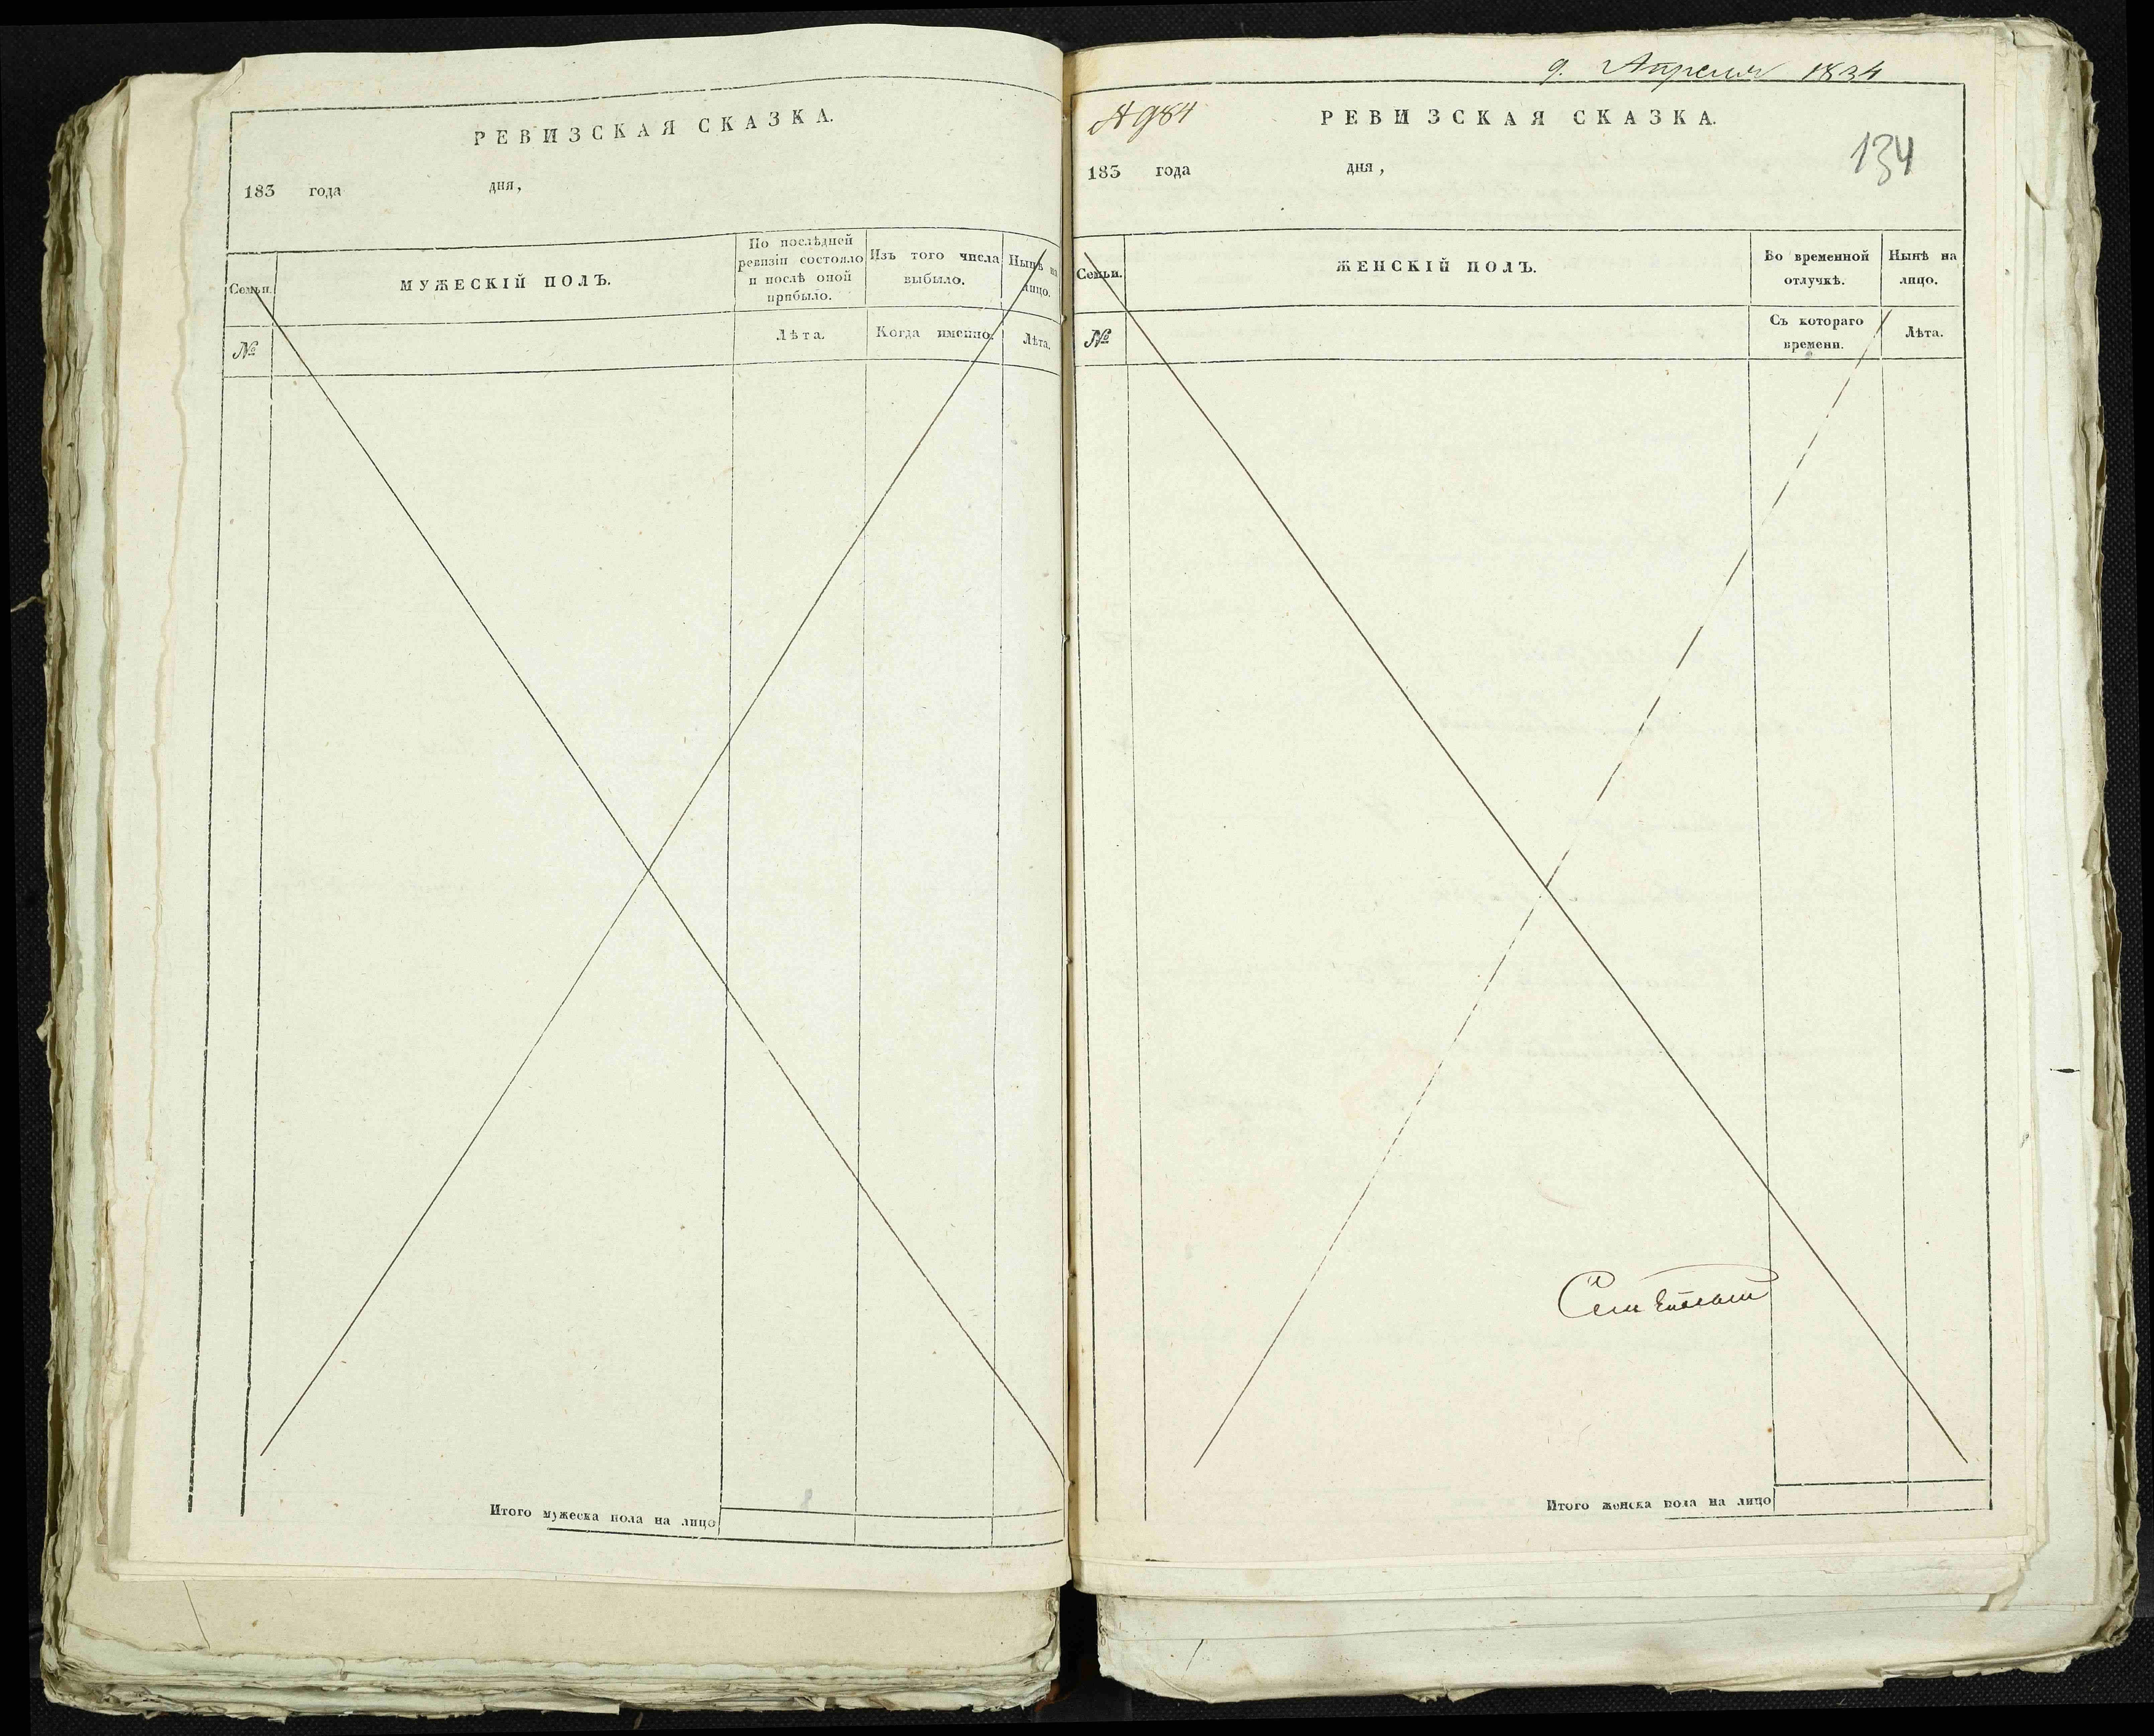 РЕВИЗСКАЯ СКАЗКА.
183 года дня,
Семьи.
МУЖЕСКІЙ ПОЛЪ.
По послѣдней ревизіи состояло и послѣ оной прибыло.
Изъ того числа выбыло.
Нынѣ на лицо.
№
Лѣта.
Когда именно.
Лѣта.
Итого мужеска пола на лицо
9. Апреля 1834
984
РЕВИЗСКАЯ СКАЗКА.
134
183 года дня,
Семьи.
ЖЕНСКІЙ ПОЛЪ.
Во временной отлучкѣ.
Нынѣ на лицо.
№
Съ котораго времени.
Лѣта.
Итого женска пола на лицо